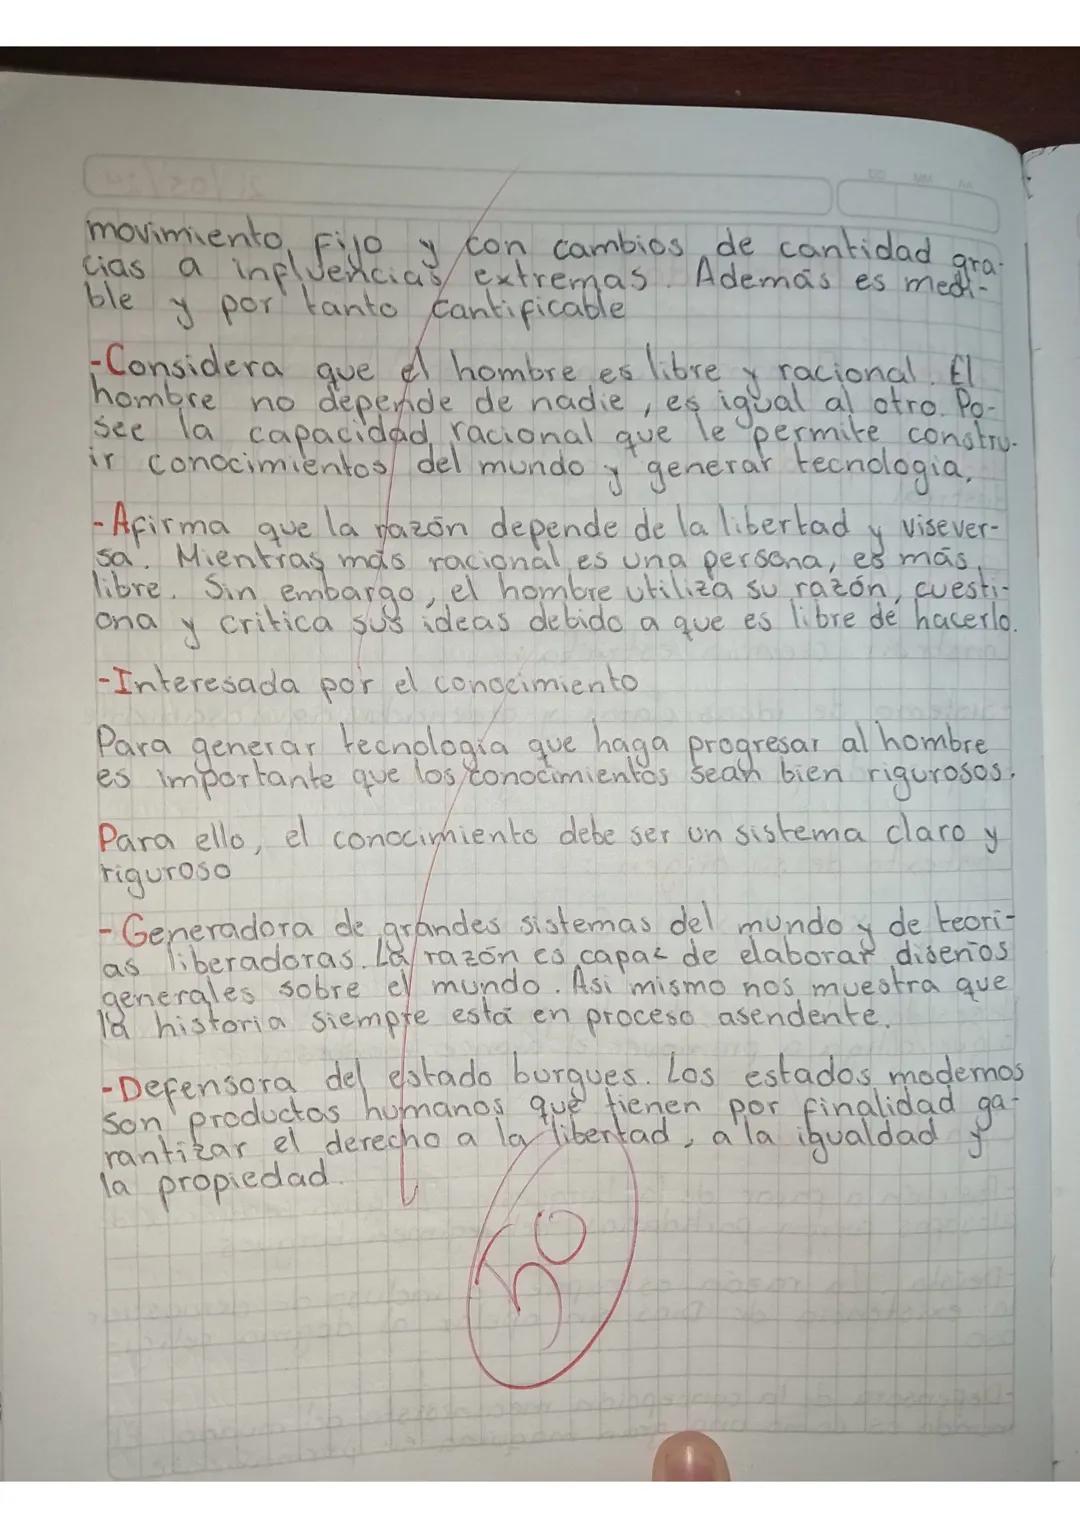 movimiento, fijo y con cambios de cantidad gra-
cias a influencias extremas. Además es medi-
ble y por tanto cantificable
-Considera que el hombre es libre y racional. El
hombre no depende de nadie, es igual al otro. Po-
see la capacidad racional que le permite constru-
ir conocimientos del mundo y generar tecnologia.
-Afirma que la razón depende de la libertad y visever-
sa. Mientras más racional es una persona, es más
libre. Sin embargo, el hombre utiliza su razón, cuesti-
ona y critica sus ideas debido a que es libre de hacerlo.
-Interesada por el conocimiento
Para generar tecnologia que haga progresar al hombre
es importante que los conocimientos sean bien rigurosos.
Para ello, el conocimiento debe ser un sistema claro y
riguroso
-Generadora de grandes sistemas del mundo y de teori-
as liberadoras. La razón es capaz de elaborar diseños
generales sobre el mundo. Asi mismo nos muestra que
la historia siempre está en proceso asendente.
-Defensora del estado burgues. Los estados modernos
son productos humanos que tienen por finalidad ga-
rantizar el derecho a la libertad, a la igualdad y
la propiedad.
50